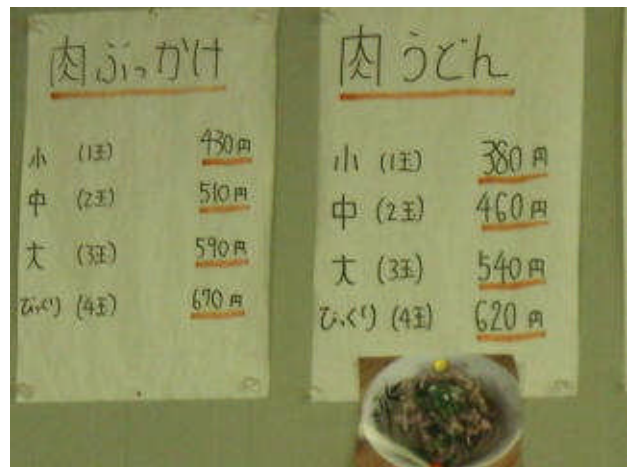 肉ぶっかけ
小 (1玉) 430円
中 (2玉) 510円
大 (3玉) 590円
びっくり (4玉) 670円
肉うどん
小 (1玉) 380円
中 (2玉) 460円
大 (3玉) 540円
びっくり (4玉) 620円